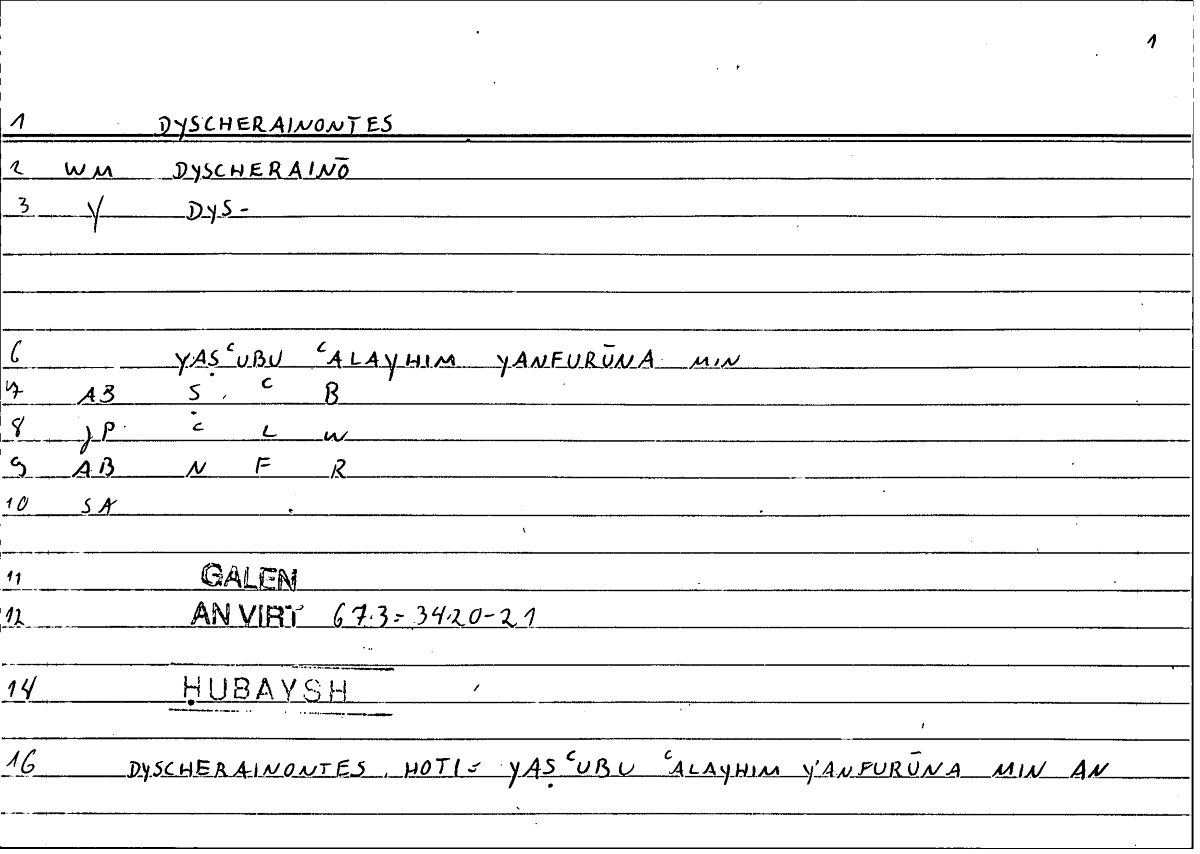 1
1 DYSCHERAINONTES
2 WM DYSCHERAINŌ
3 Y DYS-
6 YAṢʿUBU ʿALAYHIM YANFURŪNA MIN
7 AB Ṣ ʿ B
8 JP ʿ L W
9 AB N F R
10 SA
11 GALEN
12 AN VIRT 67.3 = 34.20-21
14 ḤUBAYSH
16 DYSCHERAINONTES, HOTI = YAṢʿUBU ʿALAYHIM YANFURŪNA MIN AN